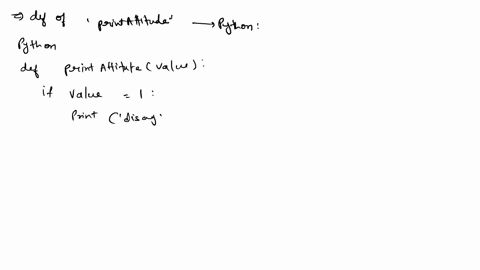 ⇒ def of 'printAttitude' → Python:
Python
def printAttitute(value):
if value = 1:
Print ('disag